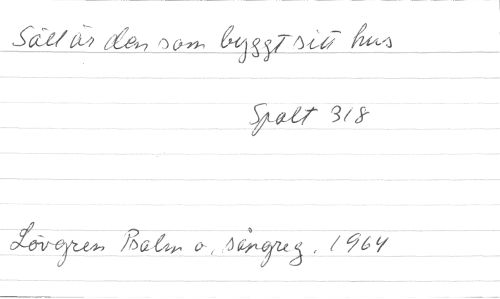 Säll är den som byggt sitt hus
Spalt 318
Lövgren Psalm o. sångreg. 1964